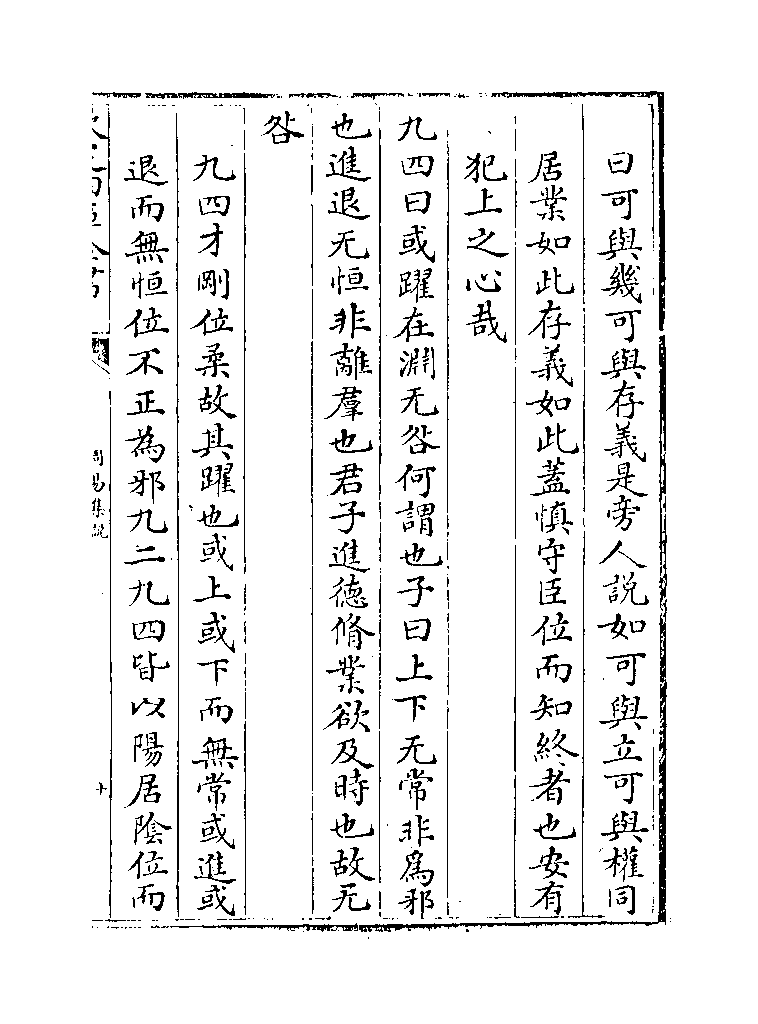 曰可與幾可與存義是旁人說如可與立可與權同
居業如此存義如此蓋慎守臣位而知終者也安有
犯上之心哉
九四曰或躍在淵无咎何謂也子曰上下无常非爲邪
也進退无恒非離羣也君子進德脩業欲及時也故无
咎
九四才剛位柔故其躍也或上或下而無常或進或
退而無恒位不正為邪九二九四皆以陽居陰位而
周易集說
十